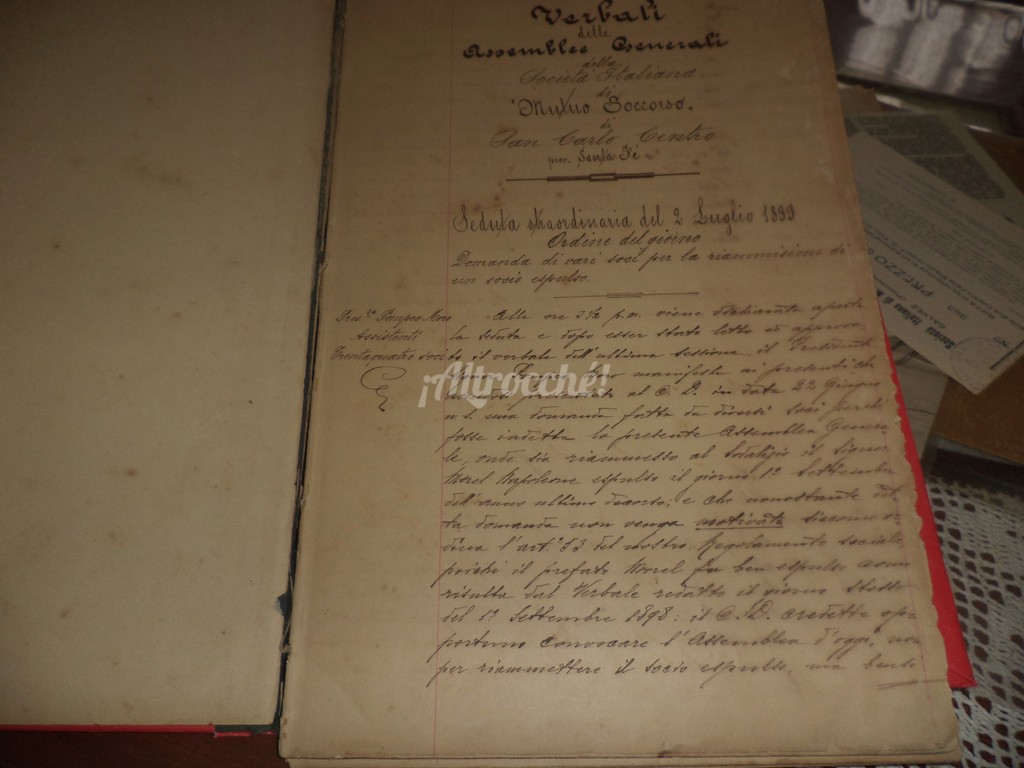 Verbali
delle
Assemblee Generali
della
Società Italiana
di
Mutuo Soccorso.
San Carlo Centro
prov. Santa Fè
Seduta straordinaria del 2 Luglio 1899
Ordine del giorno
Domanda di vari soci per la riammisione di
un socio espulso.
Pres.te Pompeo
Assistenti
Trentaquattro soci
Alle ore 3½ p.m. viene dichiarata aperta
la seduta e dopo esser stato letto ed approva
to il verbale dell'ultima sessione il Presidente
manifesta ai presenti che
presentata al C. D. in data 22 Giugno
una domanda fatta da diversi soci perchè
fosse indetta la presente Assemblea Genera
le onde sia riammesso al sodalizio il Signor
Morel Napoleone espulso il giorno 1º Settembre
dell'anno ultimo decorso; e che nonostante det
ta domanda non venga motivata siccome or
dina l'art.º 53 del nostro Regolamento sociale
poichè il prefato Morel fu ben espulso come
risulta dal Verbale redatto il giorno stesso
del 1º Settembre 1898: il C. D. credette op
portuno convocare l'Assemblea d'oggi, non
per riammettere il socio espulso, ma bensì
¡Altrocché!
Società Italiana di
PREZZO